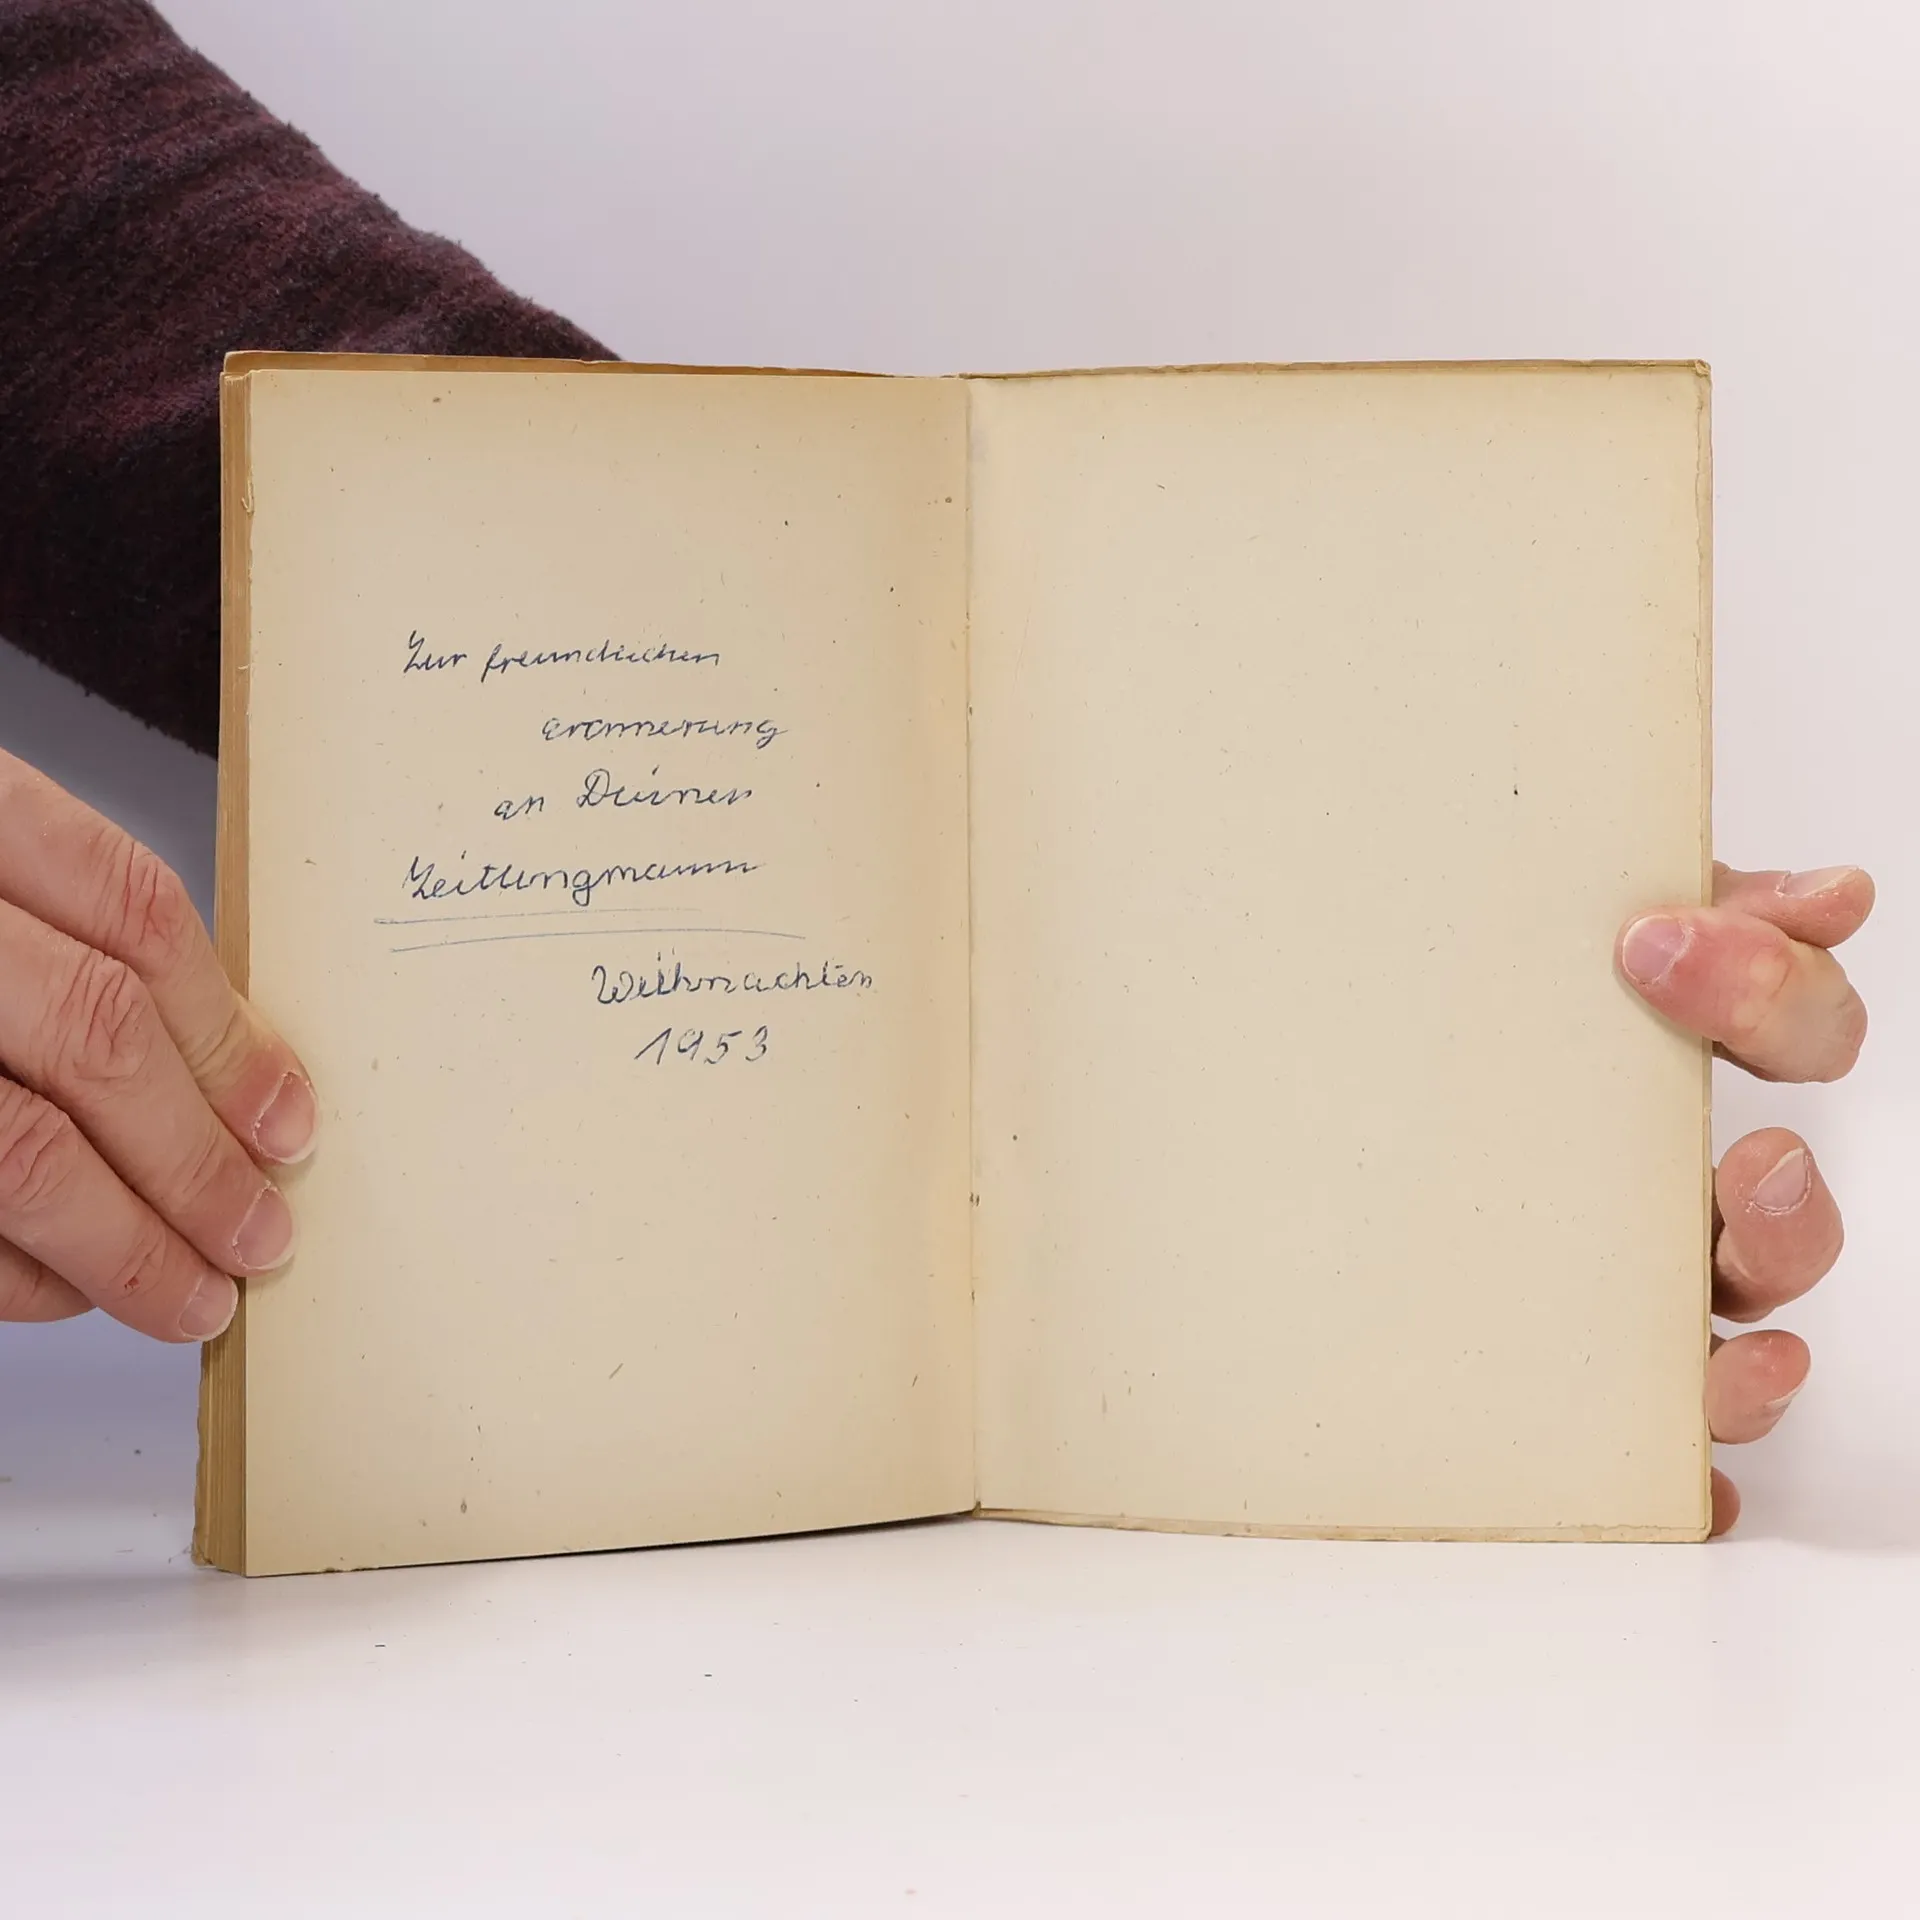 Zur freundlichen
erinnerung
an Deinen
Zeitungmann
Weihnachten
1953